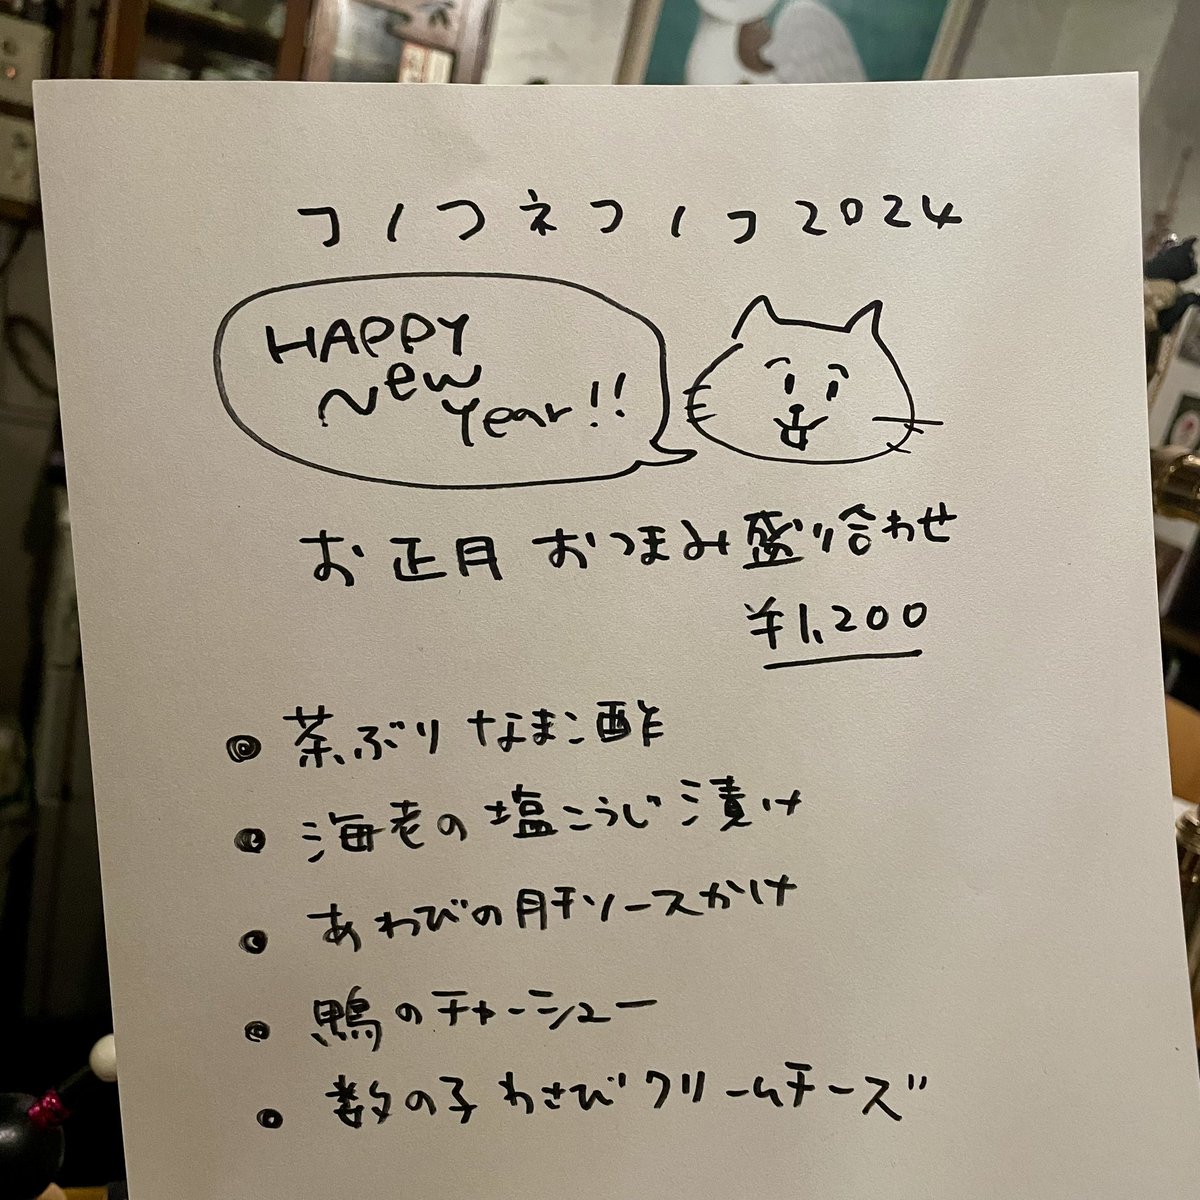 コノコネコノコ2024
HAPPY
New
Year!!
お正月 おつまみ盛り合わせ
¥1,200
茶ぶりなまこ酢
海老の塩こうじ漬け
あわびの肝ソースかけ
鴨のチャーシュー
数の子わさびクリームチーズ